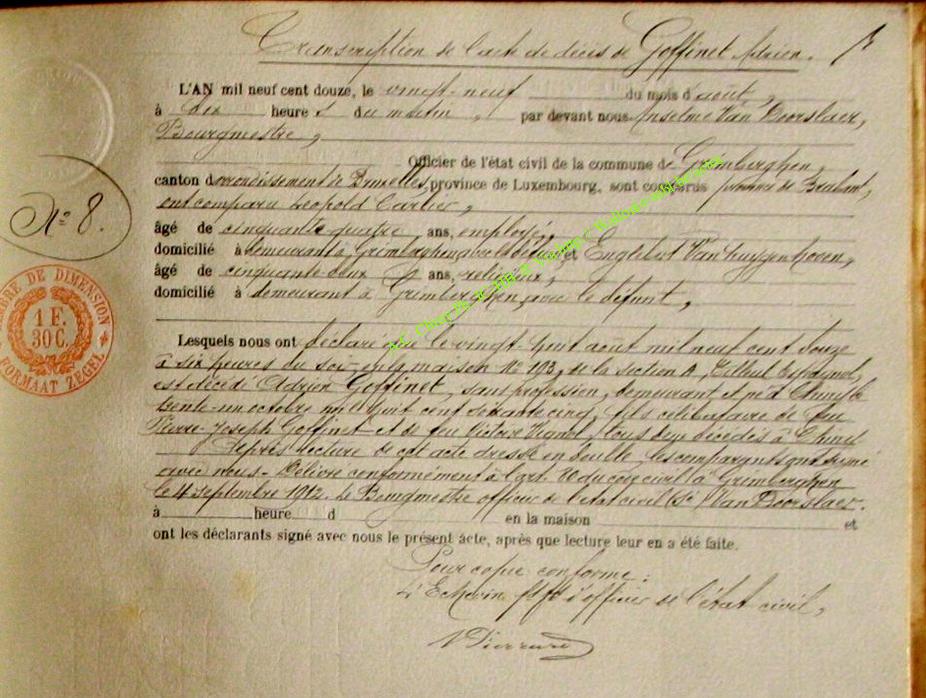 Transcription de l'acte de décès de Goffinet Adrien.
L'AN mil neuf cent douze, le vingt-neuf du mois d'août,
à dix heures du matin, par devant nous Anselme Van Doorslaer,
Bourgmestre,
Officier de l'état civil de la commune de Grimberghen,
canton d'arrondissement de Bruxelles, province de Luxembourg, sont comparus province de Brabant,
ont comparu Léopold Carlier,
N° 8.
âgé de cinquante quatre ans, employé,
domicilié à demeurant à Grimberghen, et Englebert Van
âgé de cinquante deux ans, religieux,
domicilié à demeurant à Grimberghen, avec le défunt,
TIMBRE DE DIMENSION
1 F.
30 C.
FORMAAT ZEGEL
Lesquels nous ont déclaré que le vingt-huit août mil neuf cent douze
à six heures du soir en la maison N° 193, de la section A,
est décédé Adrien Goffinet, sans profession, demeurant et né à Chiny le
trente-un octobre mil huit cent soixante cinq, fils célibataire de feu
Pierre-Joseph Goffinet et de feu Victoire Vignol, tous deux décédés à Chiny
Après lecture de cet acte dressé en double, les comparants ont signé
avec nous. Délivré conformément à l'art. du code civil à Grimberghen
le 4 septembre 1912. Le Bourgmestre officier de l'état civil (s) Van Doorslaer.
à heure d en la maison et
ont les déclarants signé avec nous le présent acte, après que lecture leur en a été faite.
Pour copie conforme:
L'Echevin ff d'officier de l'état civil,